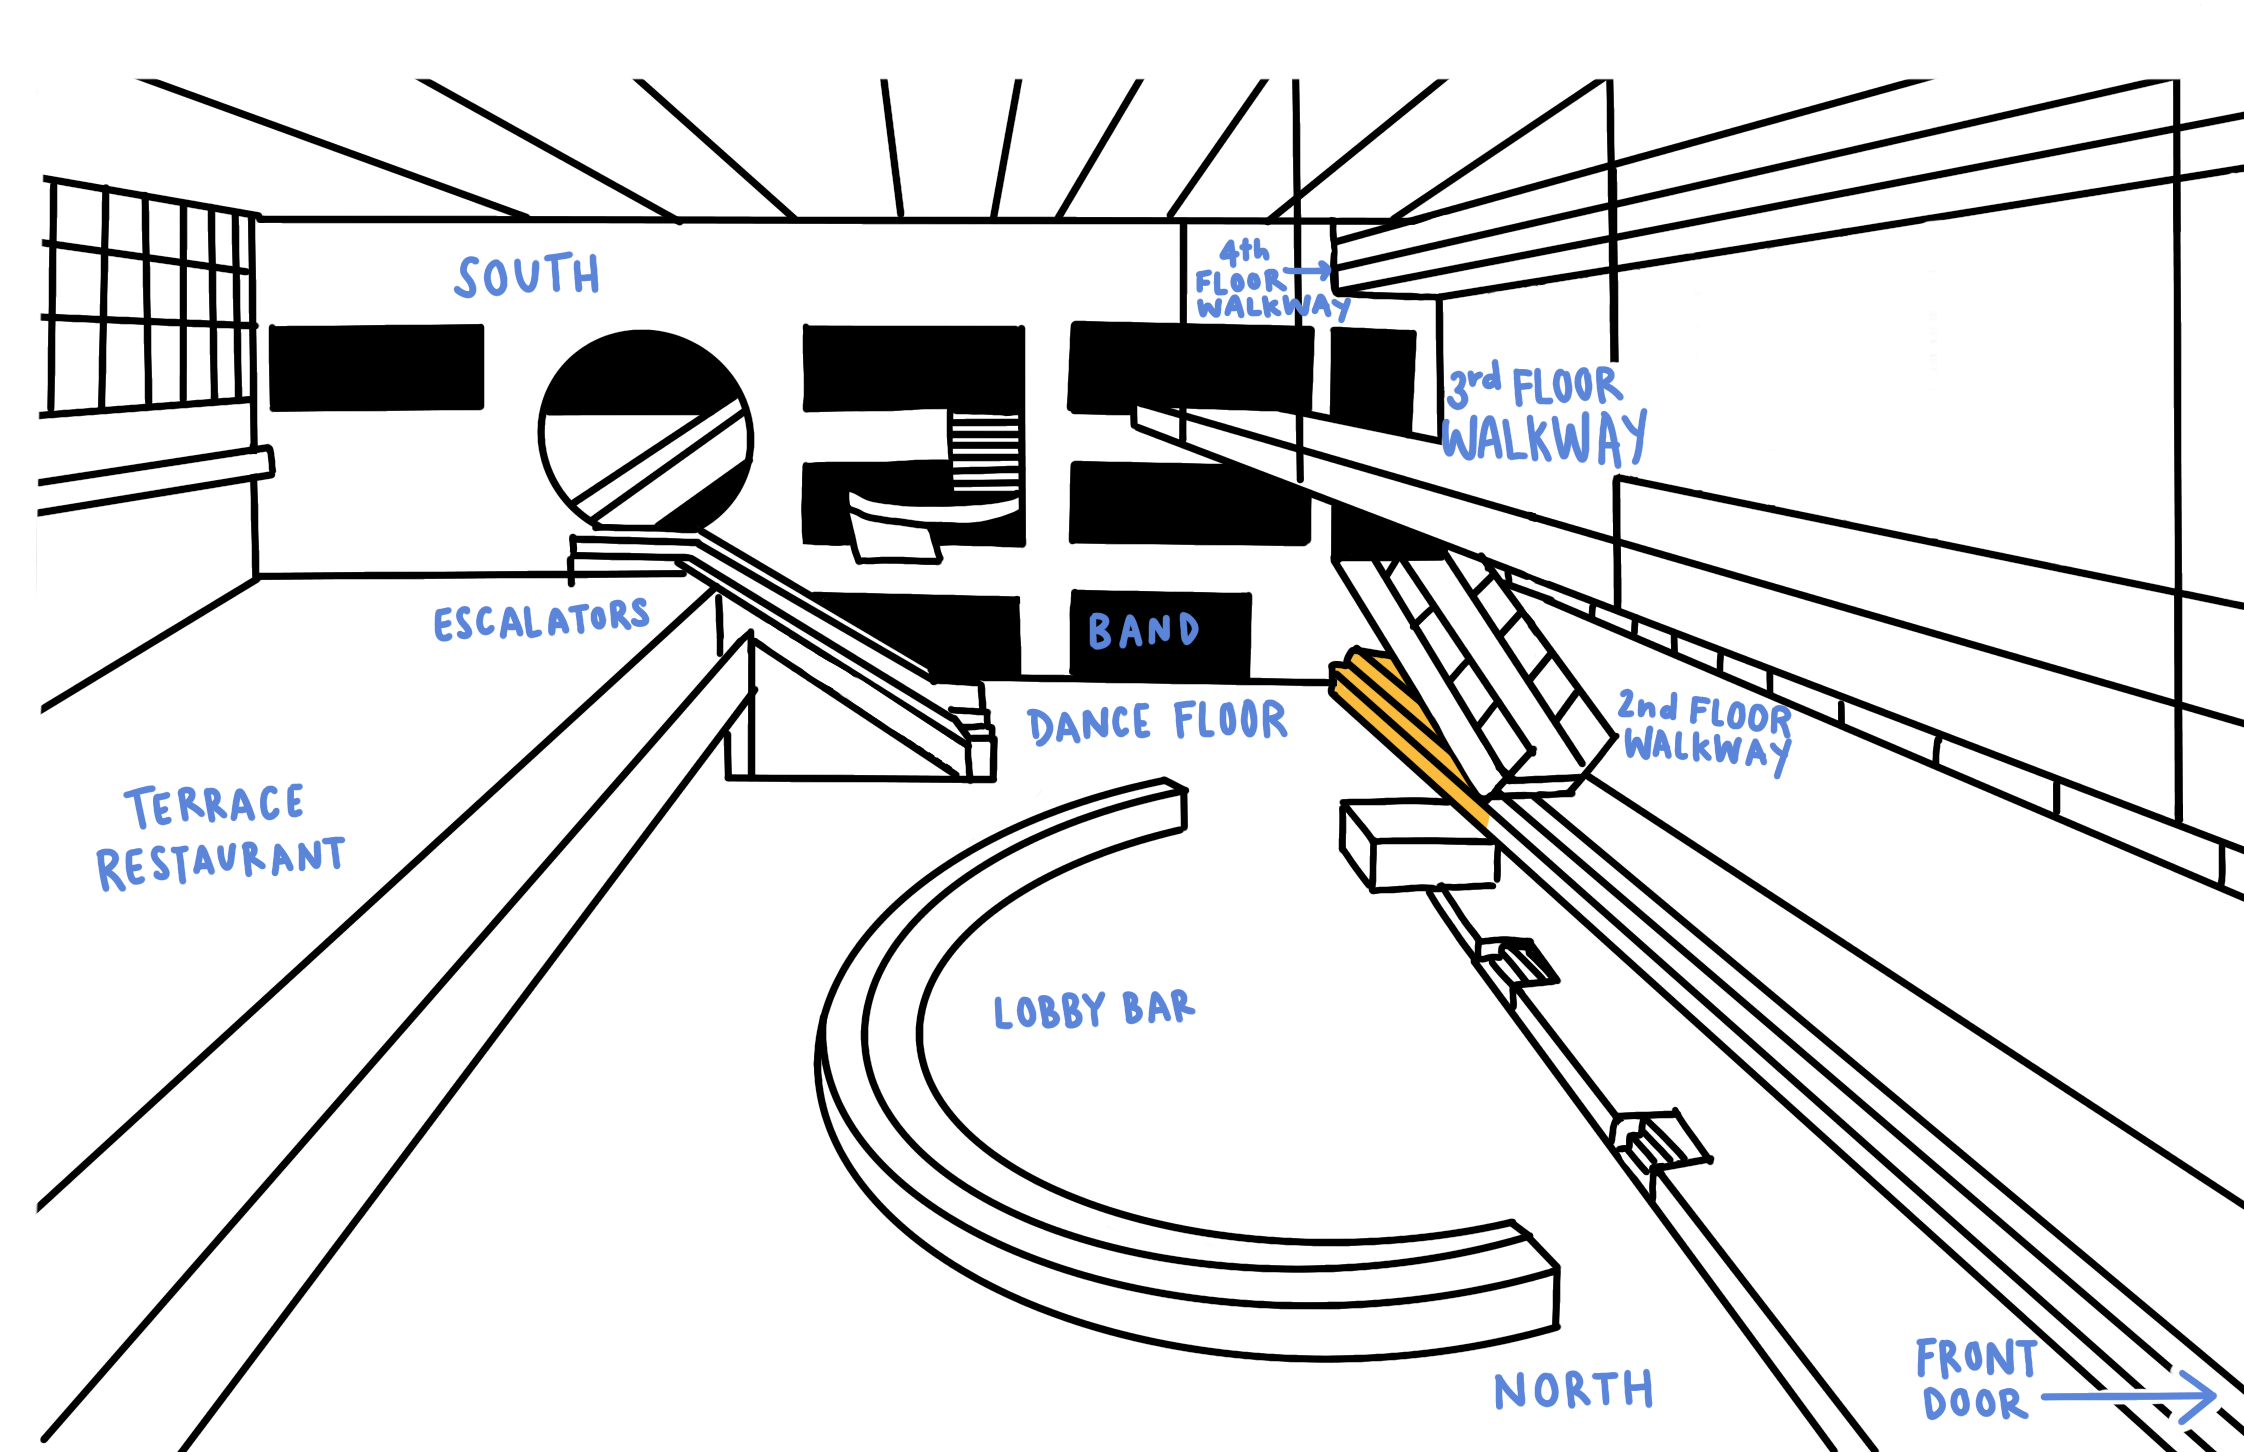 SOUTH
4th
FLOOR
WALKWAY
3rd FLOOR
WALKWAY
ESCALATORS
BAND
DANCE FLOOR
2nd FLOOR
WALKWAY
TERRACE
RESTAURANT
LOBBY BAR
NORTH
FRONT
DOOR